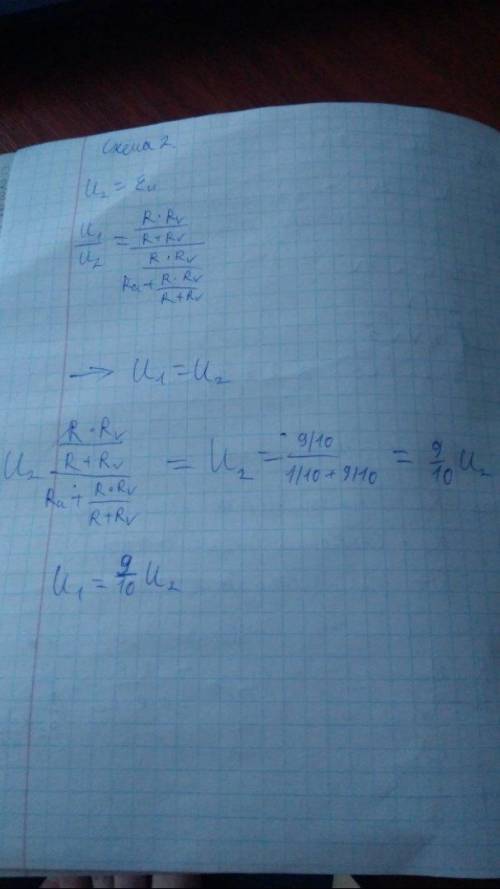 Схема 2.
U₂ = Ɛu
U₁/U₂ = ((R·Rv)/(R+Rv))/((R·Rv)/(Ra+(R·Rv)/(R+Rv)))
→ U₁ = U₂
U₂ ((R·Rv)/(R+Rv))/(Ra+(R·Rv)/(R+Rv)) = U₂ = (9/10)/(1/10+9/10) = 9/10 U₂
U₁ = 9/10 U₂